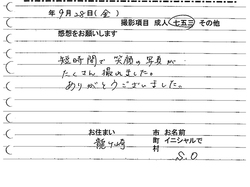 年9月28日(金)
撮影項目 成人 七五三 その他
感想をお願いします
短時間で笑顔の写真が
たくさん撮れました。
ありがとうございました。
お住まい 市町村 お名前 イニシャルで
龍ヶ崎 S.O